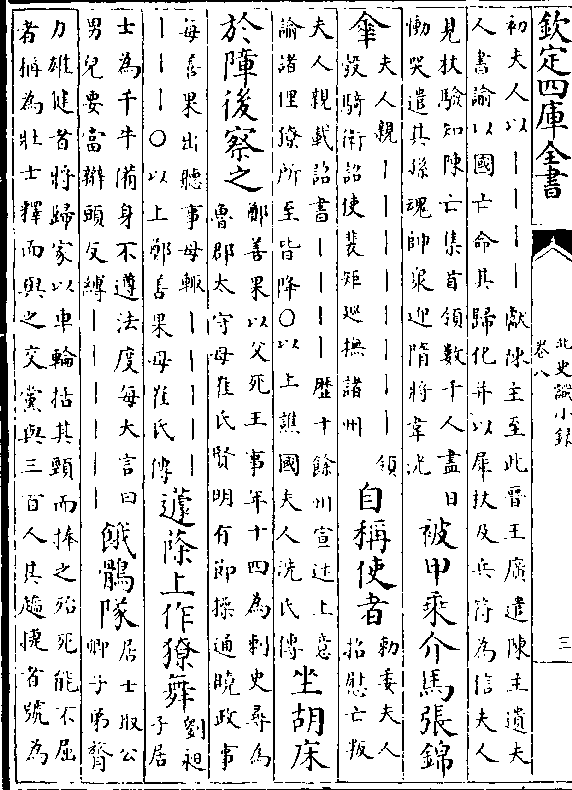 欽定四庫全書
北史識小錄
卷八
三
初夫人以｜｜｜｜獻陳主至此晉王廣遣陳主遺夫
人書諭以國亡命其歸化并以犀杖及兵符為信夫人
見杖驗知陳亡集首領數千人盡日
慟哭遣其孫魂帥眾迎隋將韋洸
被甲乘介馬張錦
傘
夫人親｜｜｜｜｜｜｜領
彀騎衛詔使裴矩巡撫諸州
自稱使者
勅委夫人
招慰亡叛
夫人親載詔書｜｜｜｜歷十餘州宣述上意
諭諸俚獠所至皆降○以上譙國夫人洗氏傳
坐胡床
於障後察之
鄭善果以父死王事年十四為刺史尋為
魯郡太守母崔氏賢明有節操通曉政事
每善果出聽事母輒｜｜｜｜｜
｜｜｜○以上鄭善果母崔氏傳
蘧蒢上作獠舞
劉昶
子居
士為千牛備身不遵法度每大言曰
男兒要當辮頭反縛｜｜｜｜｜｜
餓鶻隊
居士取公
卿子弟膂
力雄健者將歸家以車輪括其頸而棒之殆死能不屈
者稱為壯士釋而與之交黨與三百人其趫捷者號為